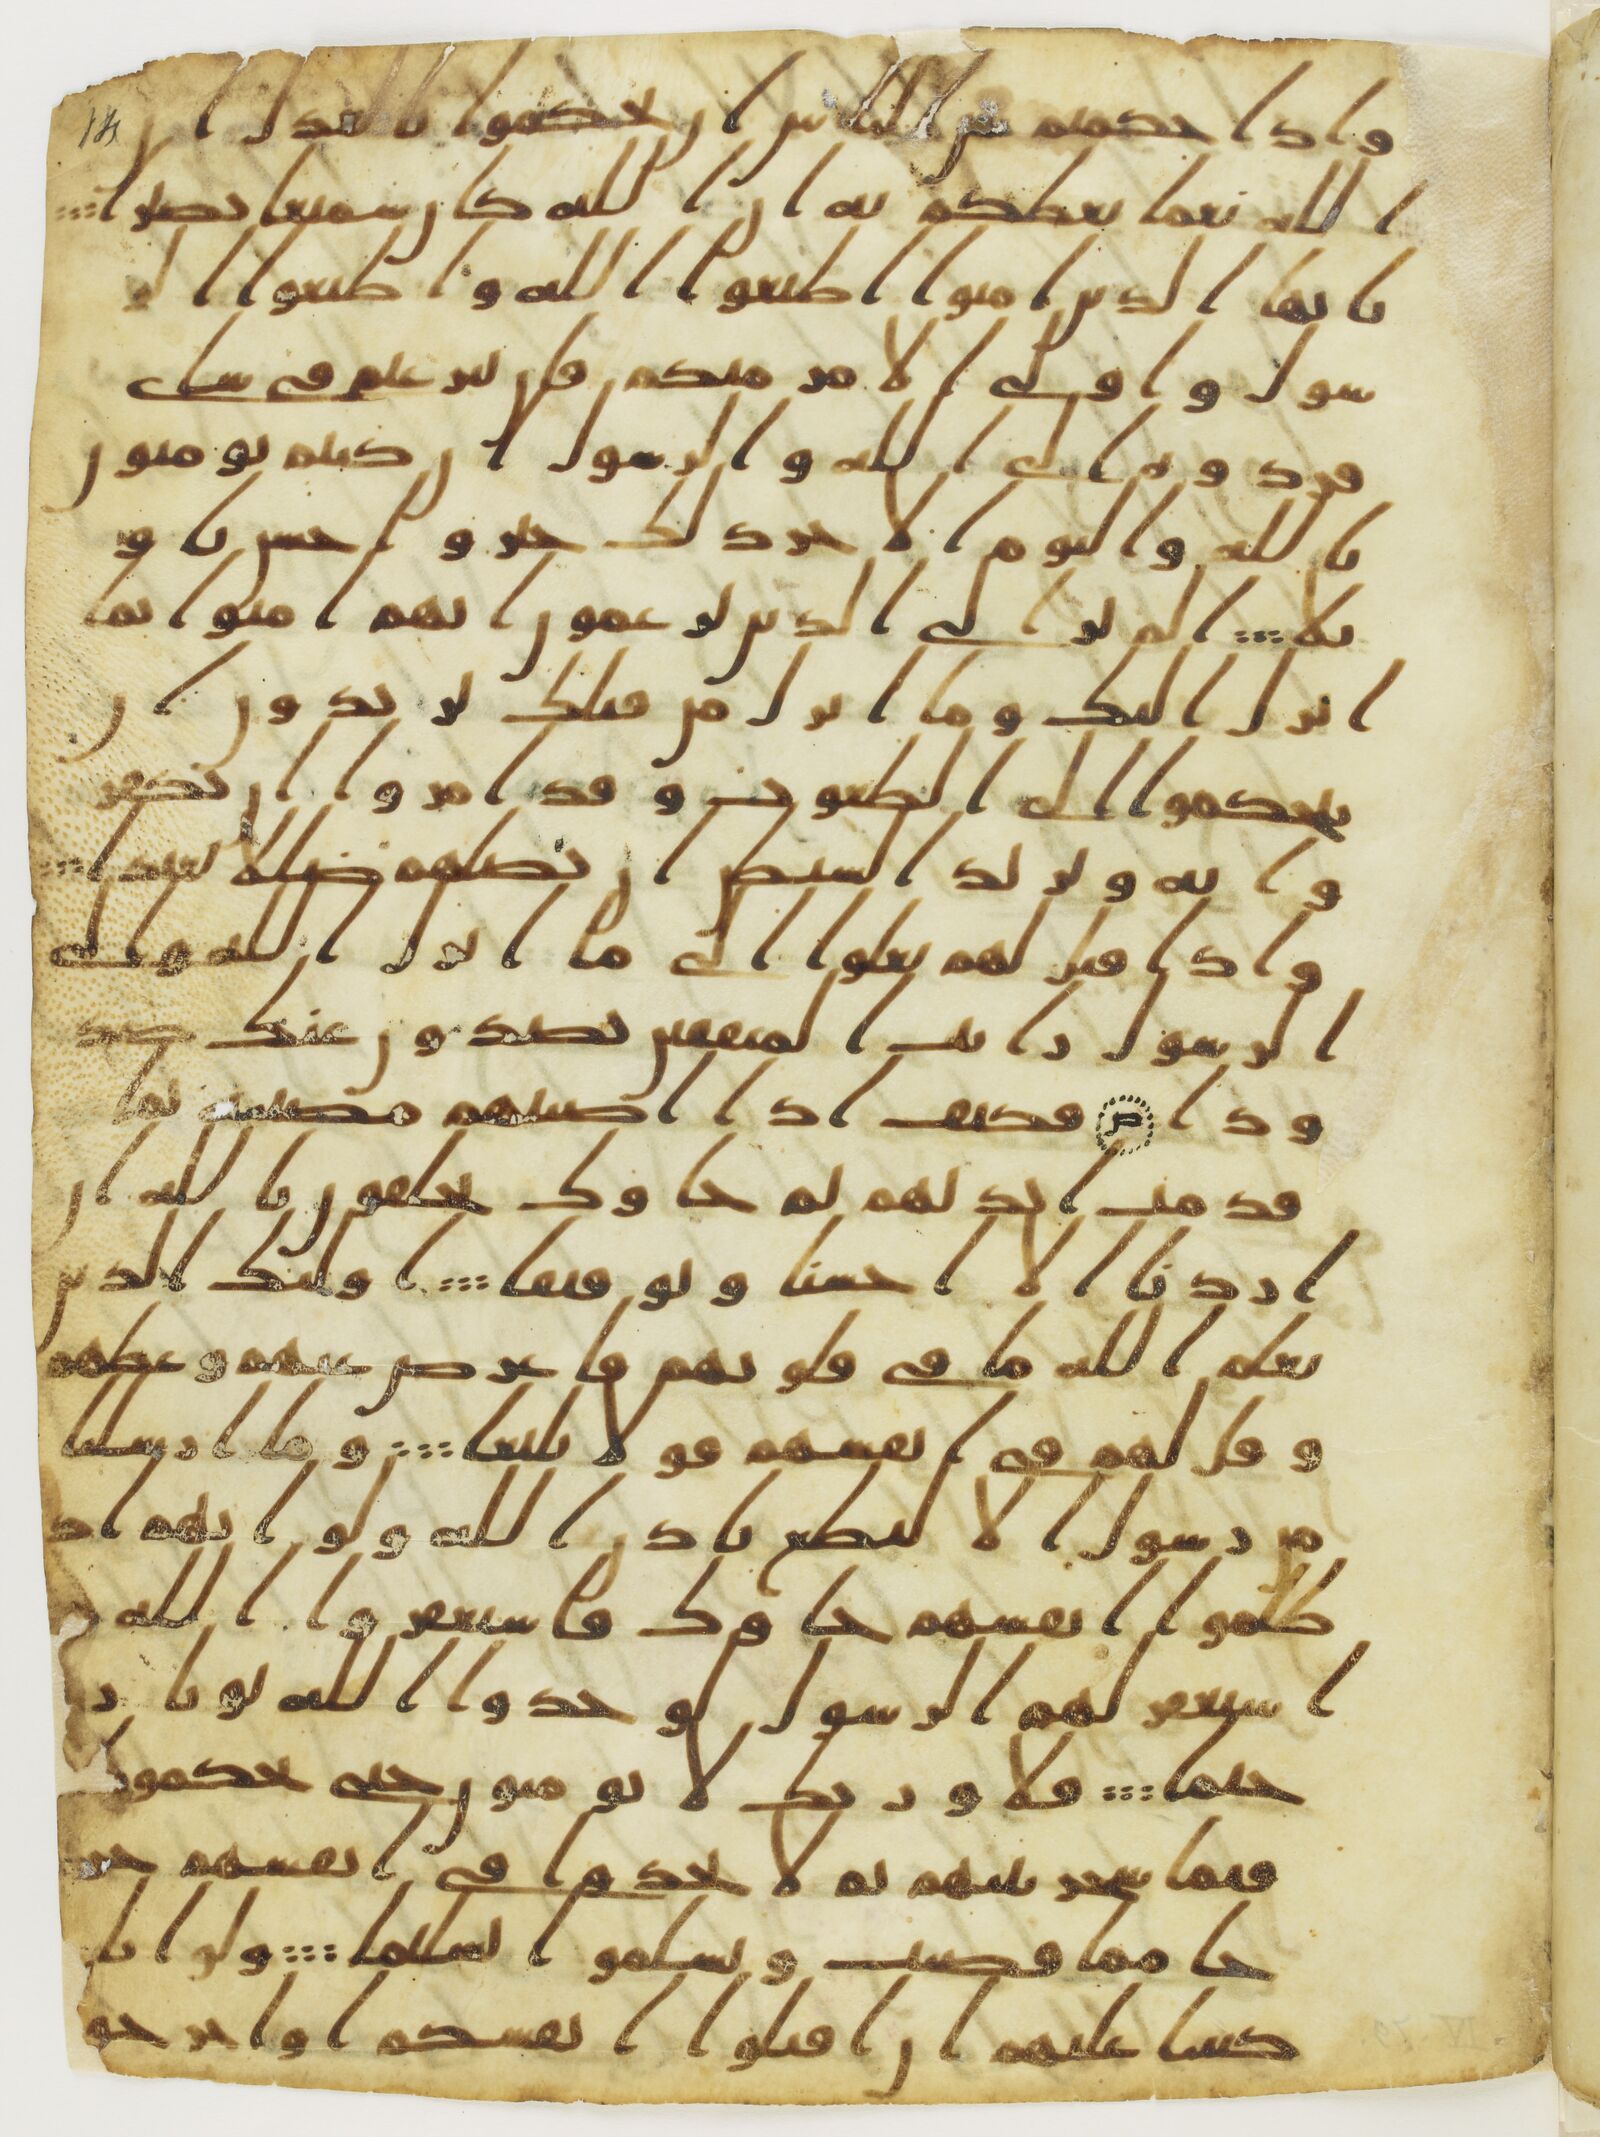 واذا حكمتم بين الناس ان تحكموا بالعدل ان
الله نعما يعظكم به ان الله كان سميعا بصيرا
يايها الذين امنوا اطيعوا الله واطيعوا الر
سول واولى الامر منكم فان تنزعتم فى شاى
فردوه الى الله والرسول ان كنتم تومنون
بالله واليوم الاخر ذلك خير واحسن تاو
يلا الم تر الى الذين يزعمون انهم امنوا بما
انزل اليك وما انزل من قبلك يريدون ان
يتحكموا الى الطغوت وقد امروا ان يكفر
وا به ويريد الشيطن ان يضلهم ضللا بعيدا
واذا قيل لهم تعلوا الى ما انزل الله والى
الرسول رايت المنفقين يصدون عنك صد
ودا فكيف اذا اصبتهم مصيبة بما
قدمت ايديهم ثم جاوك يحلفون بالله ان
اردنا الا احسنا وتوفيقا اوليك الذين
يعلم الله ما فى قلوبهم فاعرض عنهم وعظهم
وقل لهم فى انفسهم قولا بليغا وما ارسلنا
من رسول الا ليطع باذن الله ولو انهم اذ
ظلموا انفسهم جاوك فاستغفروا الله و
استغفر لهم الرسول لوجدوا الله توابا ر
حيما فلا وربك لا يومنون حتى يحكموك
فيما شجر بينهم ثم لا يجدوا فى انفسهم حر
جا مما قضيت ويسلموا تسليما ولو انا
كتبنا عليهم ان اقتلوا انفسكم او اخرجو